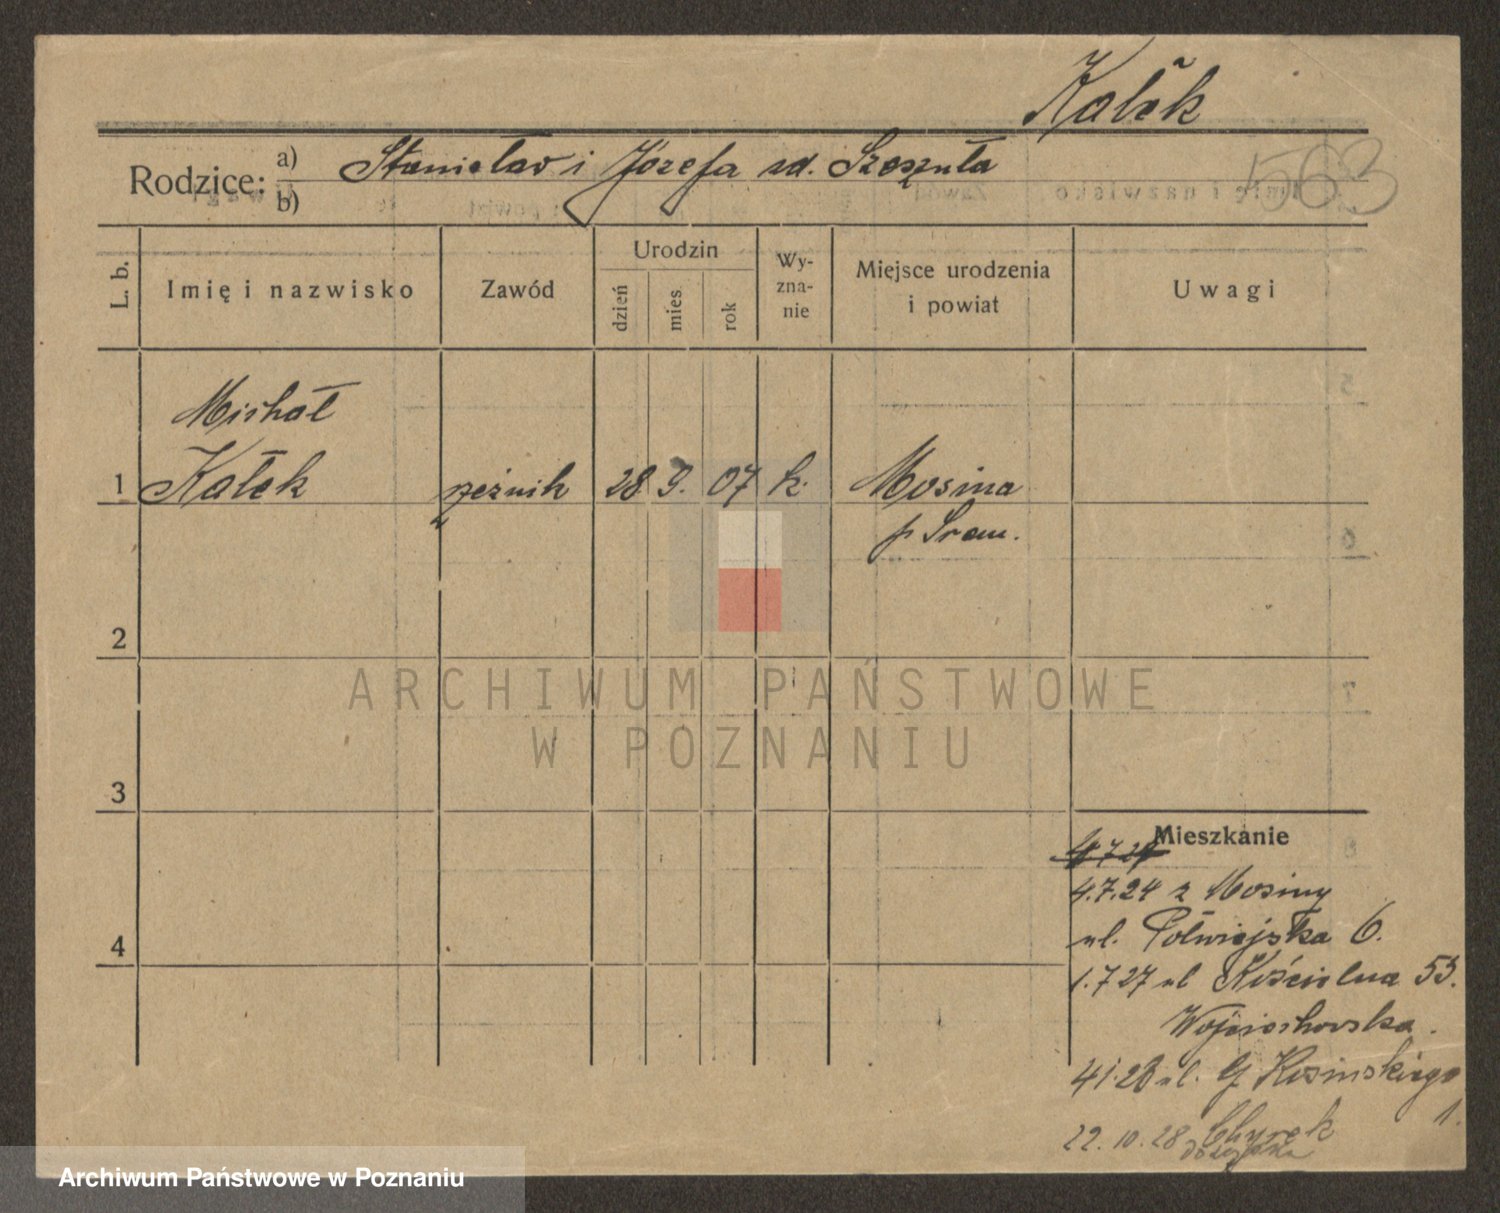 Kałek
Rodzice: a) Stanisław i Józefa zd. Szeszuła
b)
563
L. b.
Imię i nazwisko
Zawód
Urodzin
dzień
mies
rok
Wy-
zna-
nie
Miejsce urodzenia
i powiat
Uwagi
Michał
1 Kałek rzeźnik 28 9. 07 k. Mosina
p Śrem.
2
3
4
Mieszkanie
4.7.24
4.7.24 z Mosiny
ul. Półwiejska 6.
1.7 27 ul Kościelna 53.
Wojciechowska.
4 1. 28 ul. G Kosinskiego
1.
22. 10. 28
ARCHIWUM PAŃSTWOWE
W POZNANIU
Archiwum Państwowe w Poznaniu